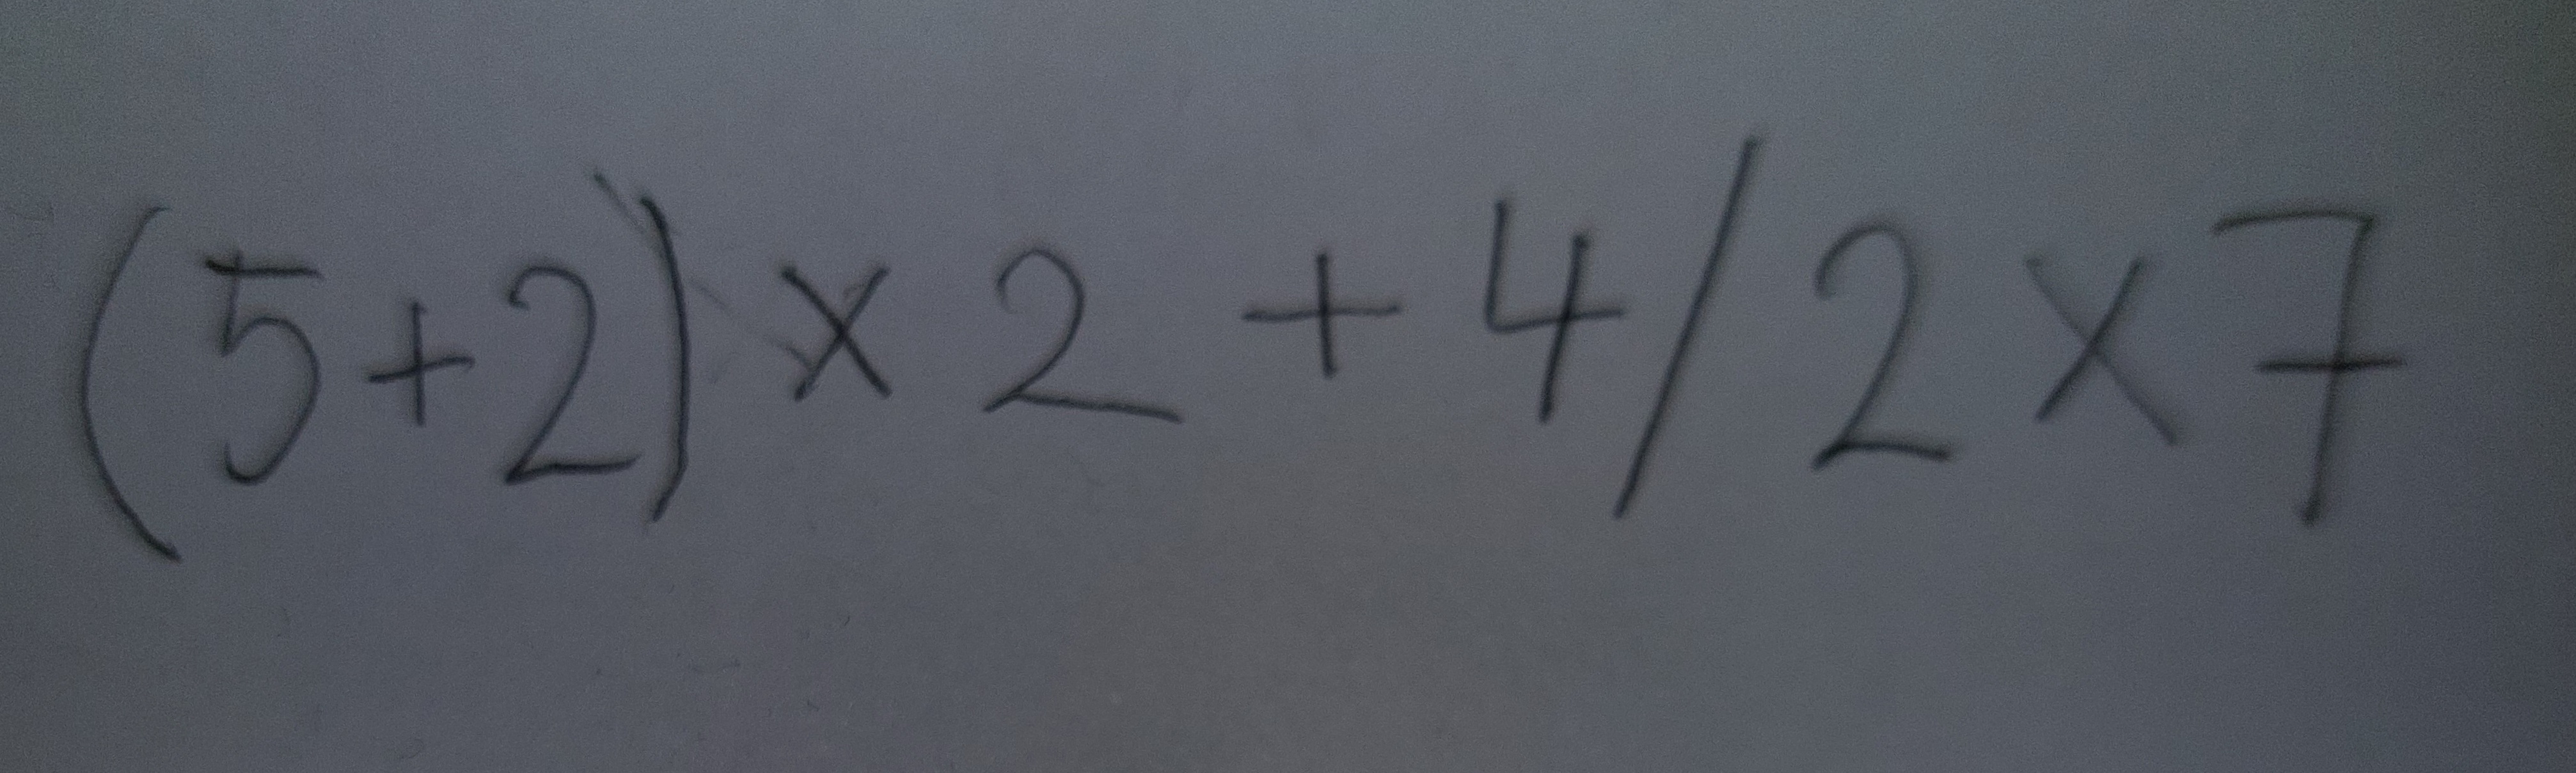 (5+2) × 2 + 4/2 × 7